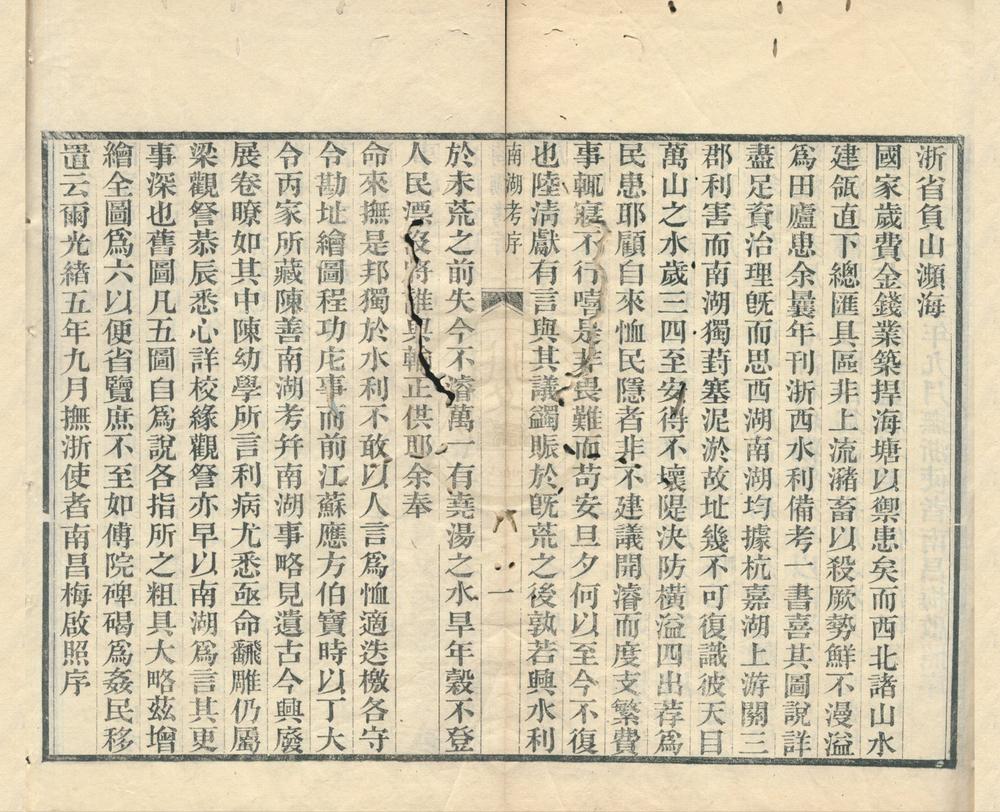 浙省負山瀕海
國家歲費金錢業築捍海塘以禦患矣而西北諸山水
建瓴直下總匯具區非上流瀦畜以殺厥勢鮮不漫溢
爲田廬患余曩年刊浙西水利備考一書喜其圖說詳
盡足資治理旣而思西湖南湖均據杭嘉湖上游關三
郡利害而南湖獨葑塞泥淤故址幾不可復識彼天目
萬山之水歲三四至安得不壞隄決防橫溢四出荐爲
民患耶顧自來恤民隱者非不建議開濬而度支繁費
事輒寢不行嘻是者畏難而苟安旦夕何以至今不復
也陸清獻有言與其議蠲賑於旣荒之後孰若興水利
南湖考序
一
於未荒之前失今不濬萬一有堯湯之水旱年穀不登
人民漂沒將誰與輸正供耶余奉
命來撫是邦獨於水利不敢以人言爲恤適迭檄各守
令勘址繪圖程功庀事而前江蘇應方伯寶時以丁大
令丙家所藏陳善南湖考幷南湖事略見遺古今興廢
展卷瞭如其中陳幼學所言利病尤悉亟命翻雕仍屬
梁觀詧恭辰悉心詳校緣觀詧亦早以南湖爲言其更
事深也舊圖凡五圖自爲說各指所之粗具大略茲增
繪全圖爲六以便省覽庶不至如傅院碑碣爲姦民移
置云爾光緒五年九月撫浙使者南昌梅啟照序